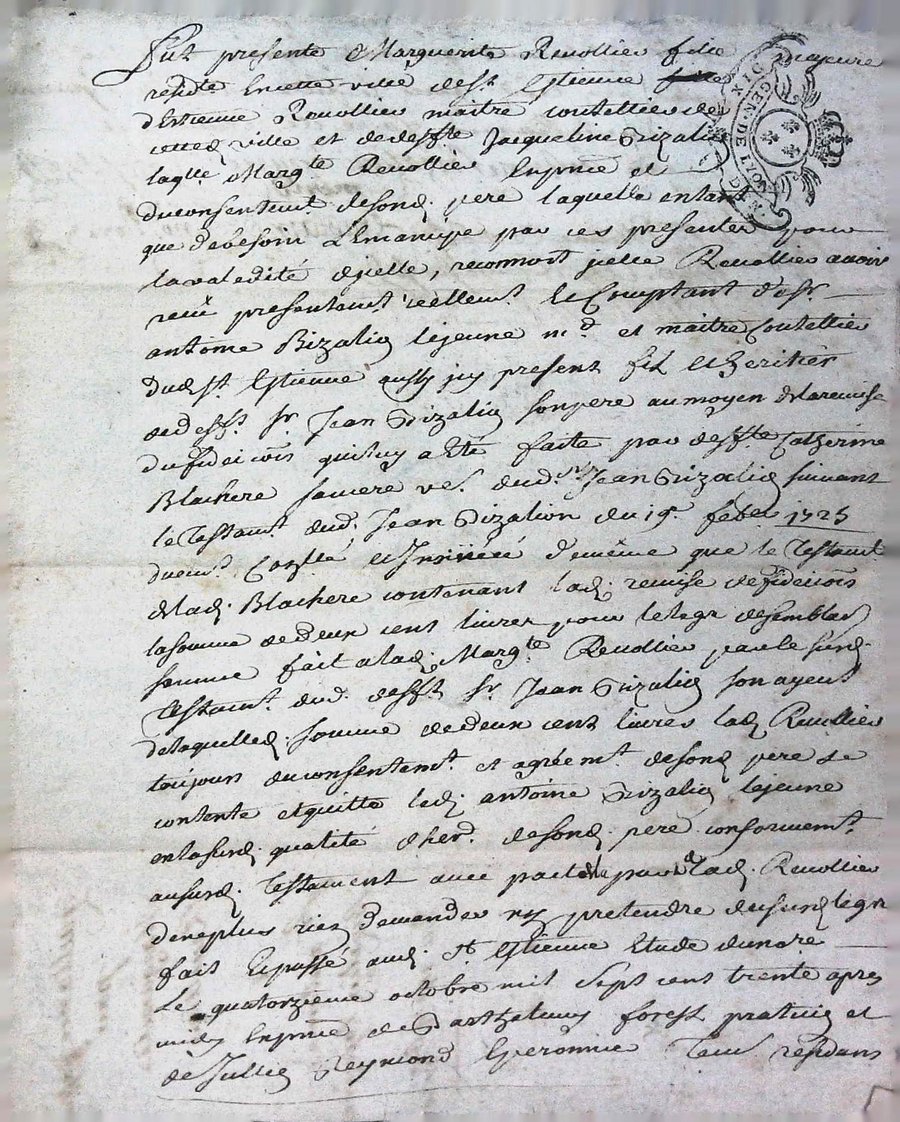 Fut presente Marguerite Reuollier fille majeure
residte. en cette ville de st. Estienne fille
d'Estienne Reuollier maitre coutellier de
cetted. ville et de deffte. Jacqueline Bizalion
laqlle. Margte. Reuollier En pnce et
du consentemt. de sond. pere laquelle entant
que de besoin L'Emancipe par ces presentes pour
la validité d'jcelle, reconnoit jcelle Reuollier avoir
reçû presentemt. reellemt. et Comptant de sr.
antoine Bizalion lejeune md. et maitre Coutellier
dud. St. Estienne aussy jcy present fils et heritier
de defft. sr. Jean Bizalion son pere au moyen de la remise
du fideicõis qui luy a Eté faite par deffte. Catherine
Blachere sa mere ve. dud. sr. Jean Bizalion suivant
le Testamt. dud. Jean Bizalion du 19e. febvr. 1725
duemt. Conllé et Insinué de même que le Testamt.
de lad. Blachere contenant lad. remise de fideicõis
la somme de deux cent livres pour le legs de semblable
somme fait a lad. Margte. Reuollier par le susd.
Testamt. dud. defft. sr. Jean Bizalion son ayeul
de laquelled. somme de deux cent livres lad. Reuollier
toujours du consentemt. et agréemt. de sond. pere se
contente et quitte led. antoine Bizalion lejeune
en la susd. qualité d'her. de sond. pere conformemt.
au susd. Testament avec pacte par lad. Reuollier
de ne plus rien demander ny pretendre du susd. legs
fait Et passé aud. St Estienne Etude du nore
Le quatorzieme octobre mil sept cent trente apres
midy En pnce de Barthelemy forest praticien et
de Jullien Reymond Eperonnier Tem. residans
DIX
GEN. DE LYON
DEN.